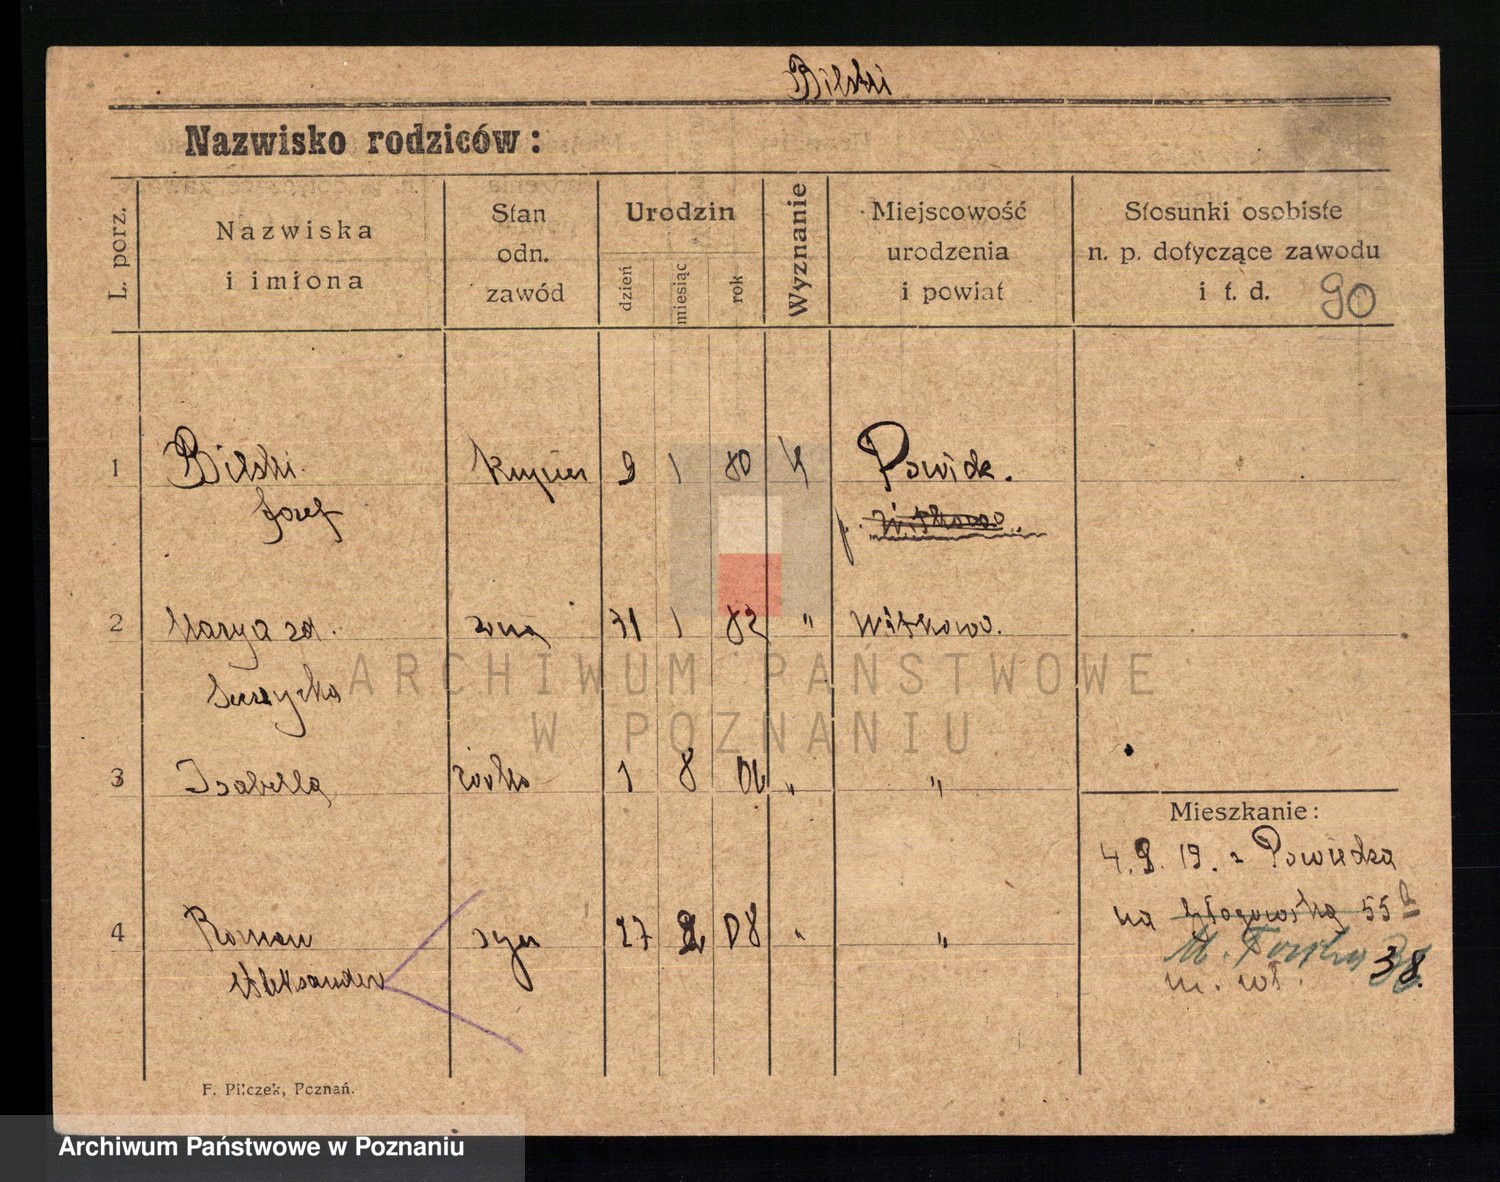 Bilski
Nazwisko rodziców:
L. porz.
Nazwiska
i imiona
Stan
odn.
zawód
Urodzin
dzień
miesiąc
rok
Wyznanie
Miejscowość
urodzenia
i powiat
Stosunki osobiste
n. p. dotyczące zawodu
i t. d.
90
1 Bilski Kupiec 9 1 80 Powidz.
Józef p. Witkowo.
2 Marya zd. żona 31 1 82 " Witkowo.
3 Izabella córka 1 8 06 " "
Mieszkanie:
4. 9. 19. z Powidza
na Głogowską 55
4 Roman syn 27 2 08 " "
M. Focha 38
Aleksander
m. wł.
F. Pilczek, Poznań.
ARCHIWUM PAŃSTWOWE
W POZNANIU
Archiwum Państwowe w Poznaniu